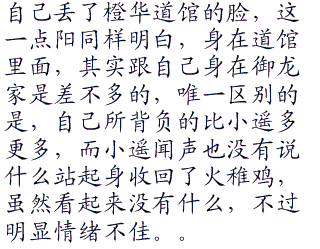 自己丢了橙华道馆的脸，这
一点阳同样明白，身在道馆
里面，其实跟自己身在御龙
家是差不多的，唯一区别的
是，自己所背负的比小遥多
更多，而小遥闻声也没有说
什么站起身收回了火稚鸡，
虽然看起来没有什么，不过
明显情绪不佳。。